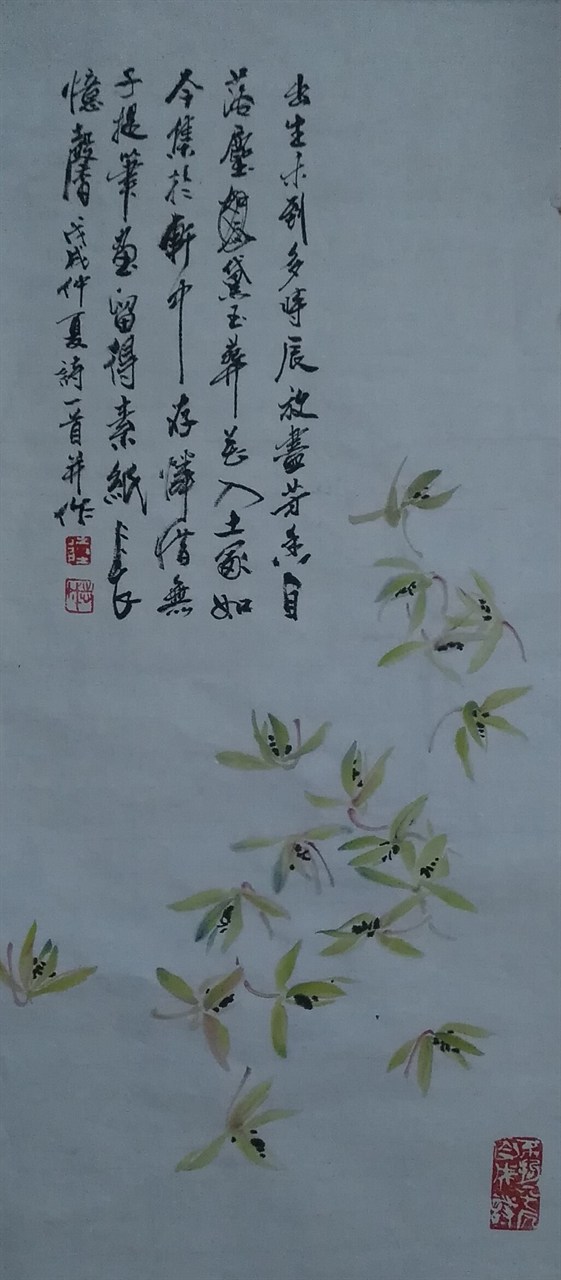 出生未到多時辰放盡芳香自
落塵黛玉葬花入土冢如
今集於軒中存憐惜無
子提筆畫留得素紙上長
憶馨 戊戌仲夏詩一首并作